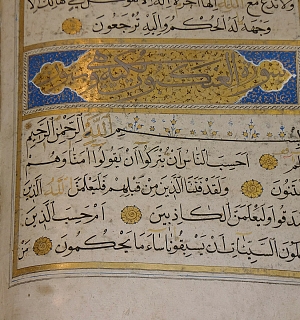 ولا تدع مع الله إلها آخر لا إله إلا هو كل شيء هالك إلا
وجهه له الحكم وإليه ترجعون
سورة العنكبوت
بسم الله الرحمن الرحيم
أحسب الناس أن يتركوا أن يقولوا آمنا وهم
يفتنون ولقد فتنا الذين من قبلهم فليعلمن الله الذين
صدقوا وليعلمن الكاذبين أم حسب الذين
يعملون السيئات أن يسبقونا ساء ما يحكمون